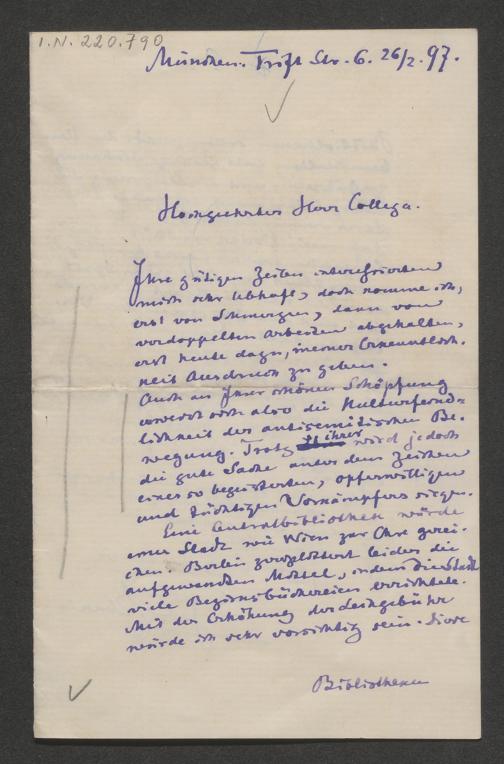 I.N. 220.790
München. Trift Str. 6. 26/2. 97.
Hochgeehrter Herr Collega.
Ihre gütigen Zeilen interessierten
mich sehr lebhaft, doch komme ich,
erst von Schmerzen, dann von
verdoppelten Arbeiten abgehalten,
erst heute dazu, meiner Erkenntlich-
keit Ausdruck zu geben.
Auch an Ihrer schönen Schöpfung
erweist sich also die Kulturfeind=
lichkeit der antisemitischen Be-
wegung. Trotz ihrer wird jedoch
die gute Sache unter dem Zeichen
eines so begeisterten, opferwilligen
und tüchtigen Vorkämpfers siegen.
Eine Centralbibliothek würde
einer Stadt wie Wien zur Ehre gerei-
chen. Berlin zersplittert leider die
aufgewandten Mittel, indem die Stadt
viele Bezirksbüchereien errichtete.
Mit der Erhöhung der Leihgebühr
würde ich sehr vorsichtig sein. Diese
Bibliotheken